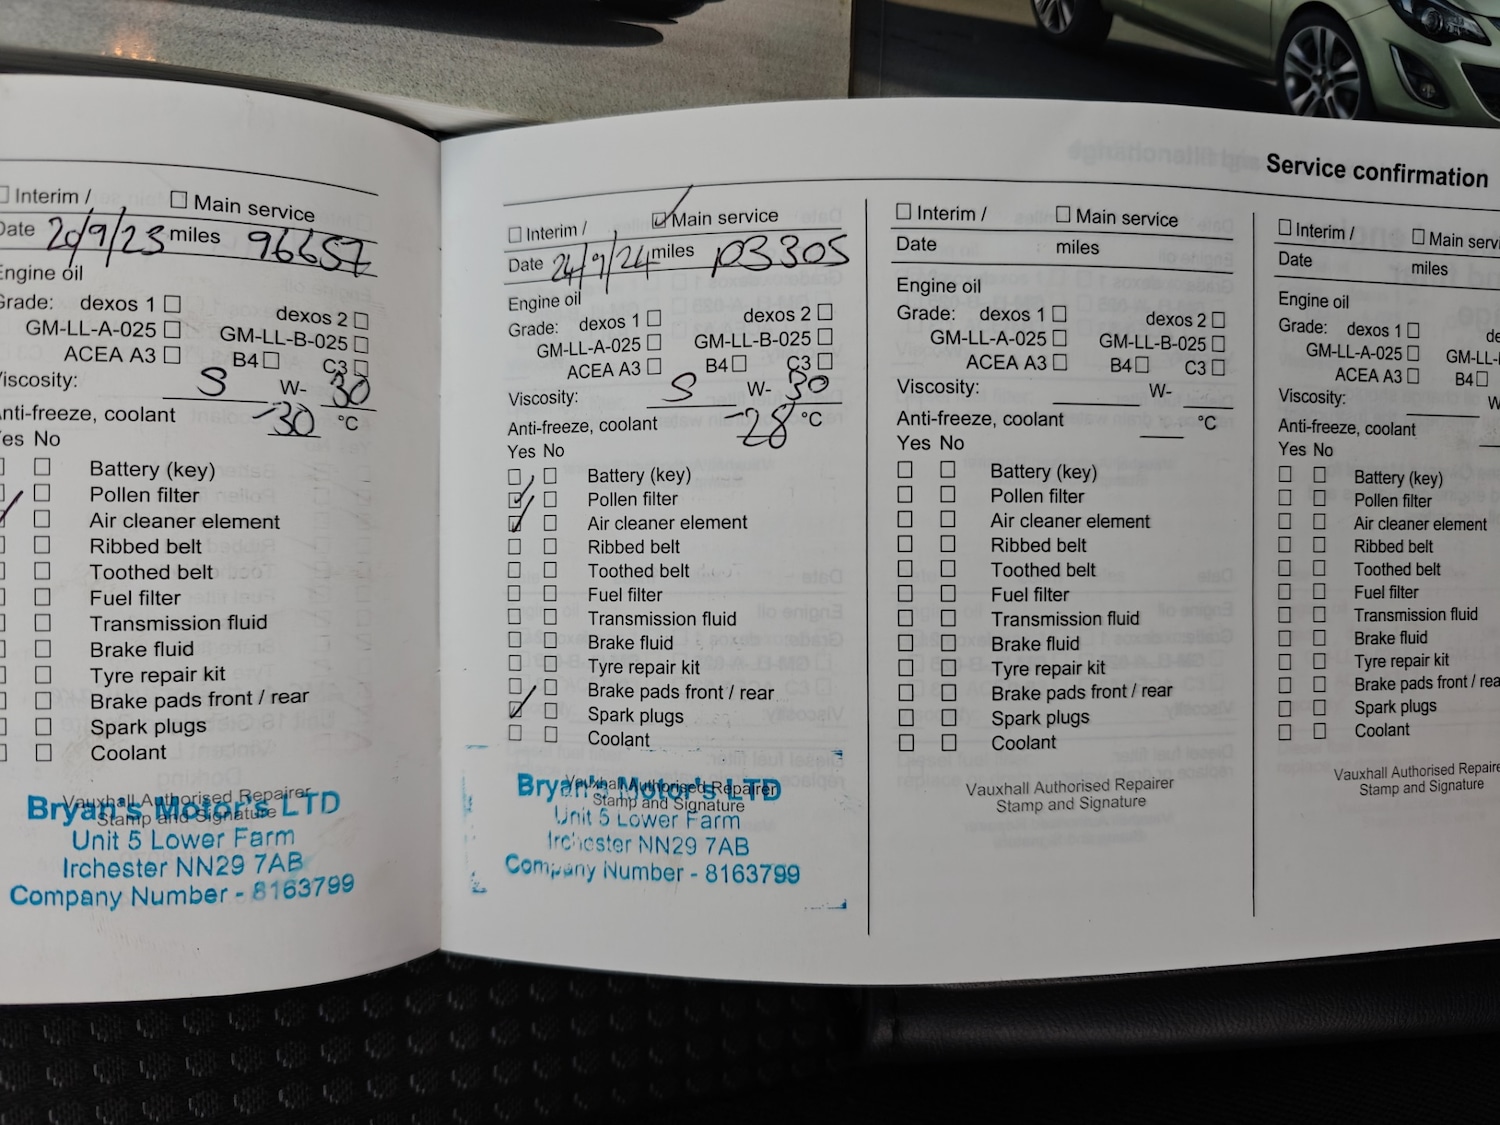 Service confirmation
Interim /
Main service
Date 20/9/23 miles 96657
Engine oil
Grade: dexos 1
dexos 2
GM-LL-A-025
GM-LL-B-025
ACEA A3
B4
C3
Viscosity: 5 W- 30
Anti-freeze, coolant -30 °C
Yes No
Battery (key)
Pollen filter
Air cleaner element
Ribbed belt
Toothed belt
Fuel filter
Transmission fluid
Brake fluid
Tyre repair kit
Brake pads front / rear
Spark plugs
Coolant
Vauxhall Authorised Repairer
Stamp and Signature
Bryan's Motor's LTD
Unit 5 Lower Farm
Irchester NN29 7AB
Company Number - 8163799
Interim /
Main service
Date 24/9/24 miles 103305
Engine oil
Grade: dexos 1
dexos 2
GM-LL-A-025
GM-LL-B-025
ACEA A3
B4
C3
Viscosity: 5 W- 30
Anti-freeze, coolant -28 °C
Yes No
Battery (key)
Pollen filter
Air cleaner element
Ribbed belt
Toothed belt
Fuel filter
Transmission fluid
Brake fluid
Tyre repair kit
Brake pads front / rear
Spark plugs
Coolant
Vauxhall Authorised Repairer
Stamp and Signature
Bryan's Motor's LTD
Unit 5 Lower Farm
Irchester NN29 7AB
Company Number - 8163799
Interim /
Main service
Date miles
Engine oil
Grade: dexos 1
dexos 2
GM-LL-A-025
GM-LL-B-025
ACEA A3
B4
C3
Viscosity: W-
Anti-freeze, coolant °C
Yes No
Battery (key)
Pollen filter
Air cleaner element
Ribbed belt
Toothed belt
Fuel filter
Transmission fluid
Brake fluid
Tyre repair kit
Brake pads front / rear
Spark plugs
Coolant
Vauxhall Authorised Repairer
Stamp and Signature
Interim /
Main
Date miles
Engine oil
Grade: dexos 1
GM-LL-A-025
ACEA A3
B4
Viscosity:
Anti-freeze, coolant
Yes No
Battery (key)
Pollen filter
Air cleaner element
Ribbed belt
Toothed belt
Fuel filter
Transmission fluid
Brake fluid
Tyre repair kit
Brake pads front /
Spark plugs
Coolant
Vauxhall Authorised
Stamp and Signature